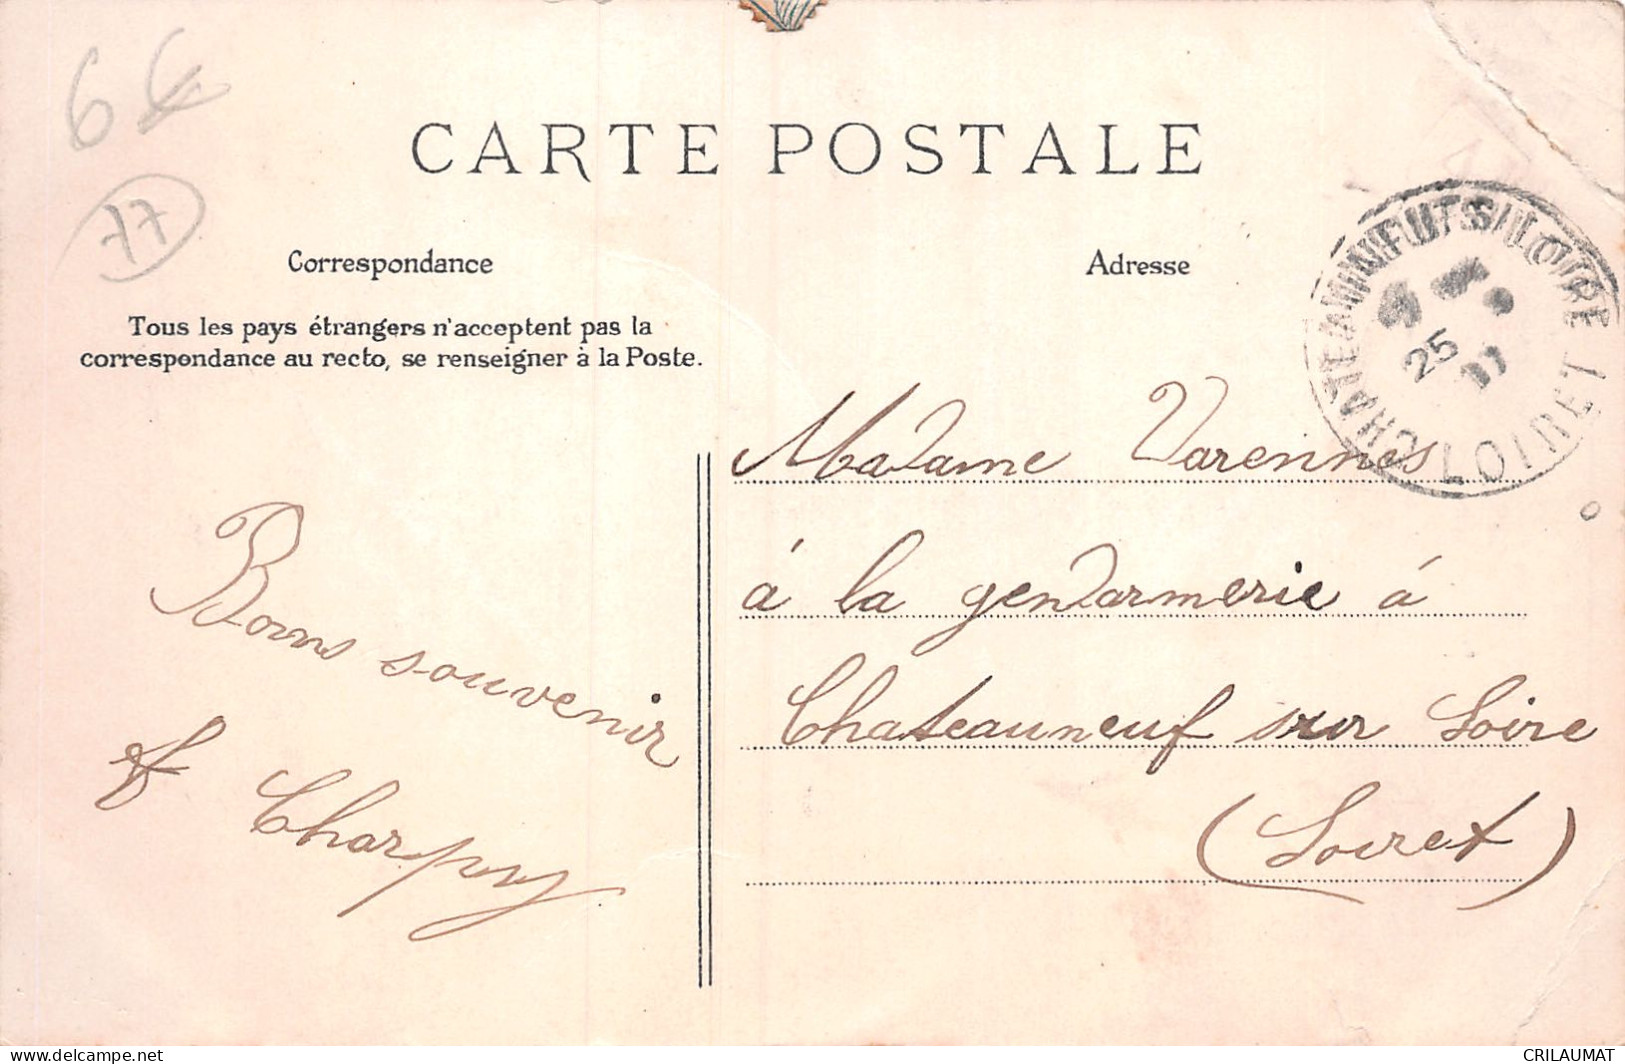 6 €
77
CARTE POSTALE
Correspondance
Adresse
Tous les pays étrangers n'acceptent pas la
correspondance au recto, se renseigner à la Poste.
CHATEAUNEUF S/ LOIRE
25
LOIRET
Madame Varennes
á la gendarmerie á
Chateauneuf sur Loire
(Loiret)
Bons souvenir
Charpy
delcampe.net
CRILAUMAT